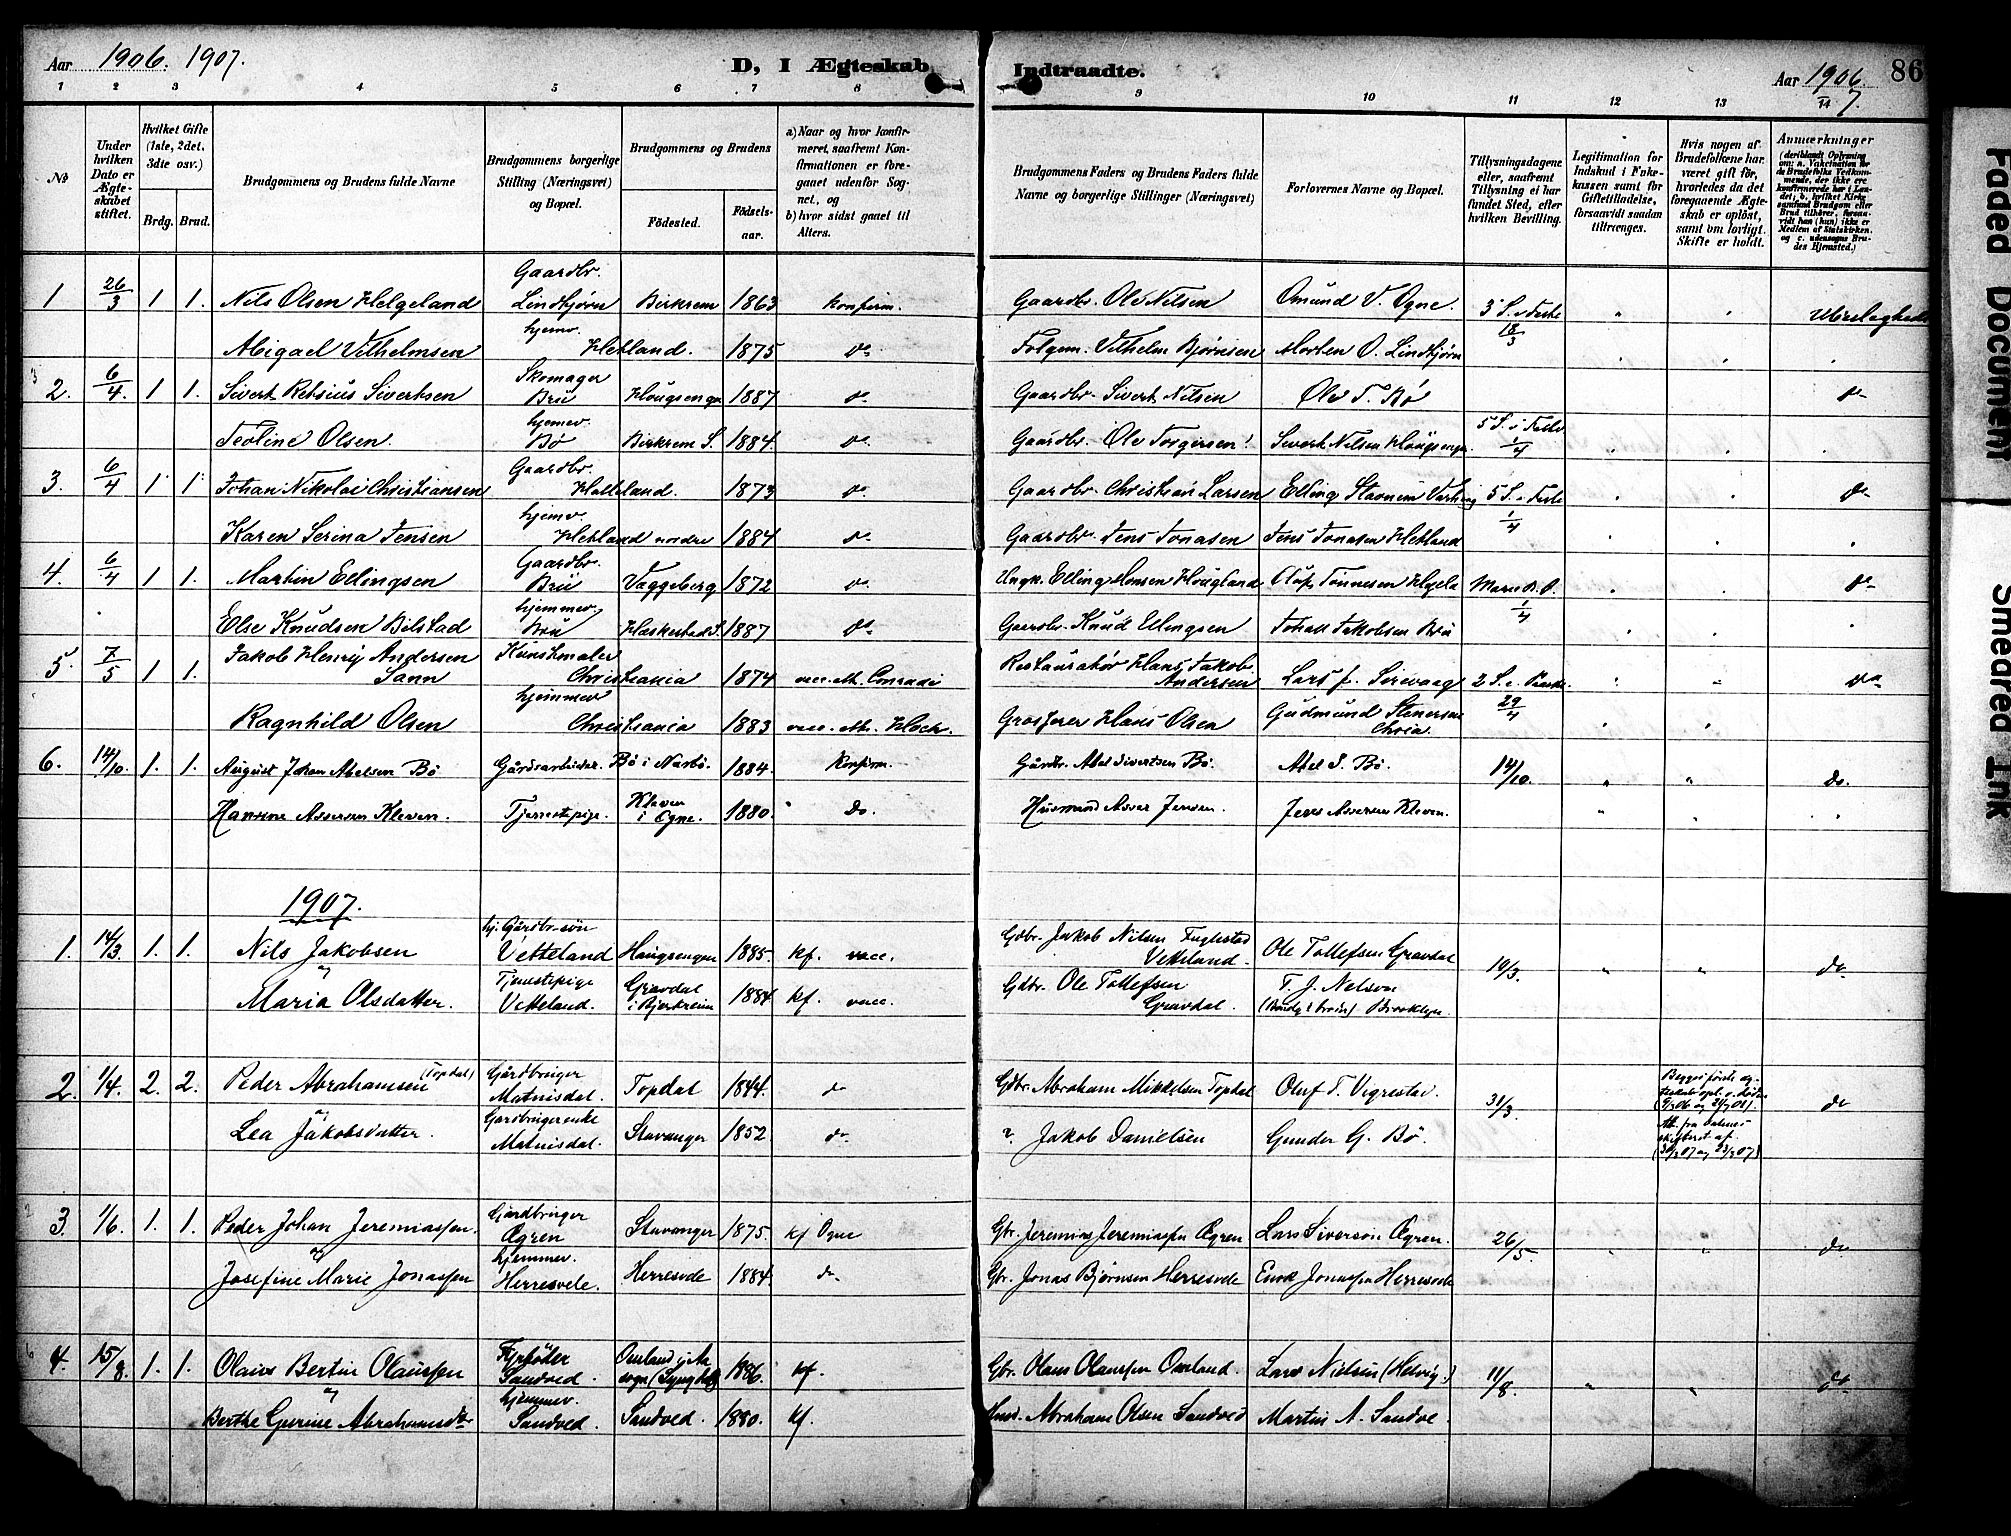 Aar 1906. 1907.
D, I Ægteskab
Indtraadte.
Aar 1906. 7
86
1 2 3 4 5 6 7 8 9 10 11 12 13 14
No
Under hvilken Dato er Ægteskabet stiftet.
Hvilket Gifte (1ste, 2det, 3die osv.)
Brdg. Brud.
Brudgommens og Brudens fulde Navne
Brudgommens borgerlige Stilling (Næringsvei) og Bopæl.
Brudgommens og Brudens
Fødested. Fødselsaar.
a) Naar og hvor konfirmeret, saafremt Konfirmationen er foregaaet udenfor Sognet, og
b) hvor sidst gaaet til Alters.
Brudgommens Faders og Brudens Faders fulde Navne og borgerlige Stillinger (Næringsvei)
Forlovernes Navne og Bopæl.
Tillysningsdagene eller, saafremt Tillysning ei har fundet Sted, efter hvilken Bevilling.
Legitimation for Indskud i Enkekassen samt for Giftetilladelse, forsaavidt saadan tiltrænges.
Hvis nogen af Brudefolkene har været gift før, hvorledes da det foregaaende Ægteskab er opløst, samt om lovligt Skifte er holdt.
Anmærkninger
(deriblandt Oplysning om: a. Vakcination for de Brudefolks Vedkommende, der ikke ere konfirmerede her i Landet; b. hvilket Kirkesamfund Brudgom eller Brud tilhører, forsaavidt han (hun) ikke er Medlem af Statskirken, og c. udensogns Brudes Hjemsted.)
1 26/3 1 1. Nils Olsen Helgeland Gaardbr. Lindtjørn Birkrem 1863 konfirm. Gaardbr. Ole Nilsen Omund V. Ogne 3 S. i Faste 18/3 " "
Abigael Vilhelmsen hjemv. Hetland. 1875 do Folgem. Vilhelm Bjørnsen Morten O. Lindtjørn
2. 6/4 1 1. Sivert Retsius Sivertsen Skomager Bru Hougsengen 1887 do Gaardbr. Sivert Nilsen Ole T. Bø do
Teoline Olsen. hjemv. Bø Birkrem S. 1884. do Gaardbr. Ole Torgersen Sivert Nilsen Hougsengen. 5 S. i Faste 1/4
3. 6/4 1 1 Johan Nikolai Christiansen Gaardbr. Hetland. 1873 do Gaardbr. Christian Larsen Elling 5 S. i Faste 1/4 do
Karen Serina Jensen hjemv. Hetland nordre 1884 do Gaardbr. Jens Jonasen Jens Jonasen Hetland
4. 6/4 1 1. Martin Ellingsen Gaardbr. Bru Vaggeberg 1872 do Ungk. Elling Monsen Hougland Tønnesen Mariæ B. D. 1/4 do
Else Knudsen Bilstad hjemmev. Bru Heskestad S. 1887 do Gaardbr. Knud Ellingsen Johan Jakobsen Bru
5. 7/5 1 1. Jakob Henrij Andersen Sann Kunstmaler Christiania 1874 vacc. att. Conradi Restauratør Hans Jakob Andersen Lars J. Sirevaag 2 S. e. Paaske. 29/4 do
Ragnhild Olsen hjemmev Christiania 1883 vacc. att. Koch. Grosserer Hans Olsen Gudmund Stenersen Chria.
6. 14/10. 1. 1. August Johan Abelsen Bø Gårdsarbeider. Bø i Nærbø. 1884. Konfirm. Gårdbr. Abel Sivertsen Bø. Abel S. Bø. 14/10. " " do.
Hansine Assersen Kleven. Tjenestepige. Kleven i Ogne. 1880. Do. Husmand Asser Jensen. Jens Assersen Kleven.
1907.
1. 14/3 1. 1. Nils Jakobsen hj. Gårdbr.søn Vetteland Haugsengen 1885. kf. vacc. Gdbr. Jakob Nilsen Fuglestad Vetteland. Ole Tollefsen Gravdal 10/3. " " do
og
Maria Olsdatter. Tjenestepige Vetteland. Gravdal i Bjerkreim 1884 kf. vacc. Gdbr. Ole Tollefsen Gravdal. T. J. Nelson (Brudg's broder) Brooklyn.
2. 1/4. 2. 2. Peder Abrahamsen (Topdal) Gårdbruger Matnisdal. Topdal 1844. do Gdbr. Abraham Mikkelsen Topdal Oluf T. Vigrestad. 31/3. Begges første ægteskab opl. v. døden do
og
Lea Jakobsdatter. Gardbrugerenke Matnisdal. Stavanger 1852. do ? Jakob Danielsen Gunder G. Bø.
3. 1/6. 1. 1. Peder Johan Jeremiassen. Gårdbruger Øgren Stavanger 1875. kf Ogne Gbr. Jeremias Jeremiassen Øgren Lars Siversen Øgren. 26/5. do
og
Josefine Marie Jonassen hjemmev. Herresvele. Herresvele 1884. do. Gbr. Jonas Bjørnsen Herresvele Enok Jonassen Herresvele
4. 15/8. 1. 1. Olaus Bertin Olaussen Fyrbøder Sandved. 1886. kf. Gbr. Olaus Olaussen Omland. Lars Nielsen (Helvig.) 11/8. " " do
og
Berthe Gurine Abrahamsd. hjemmev. Sandved. Sandved. 1880. kf. Husd. Abraham Olsen Sandved Martin A. Sandve.
Faded Document
Smeared Ink